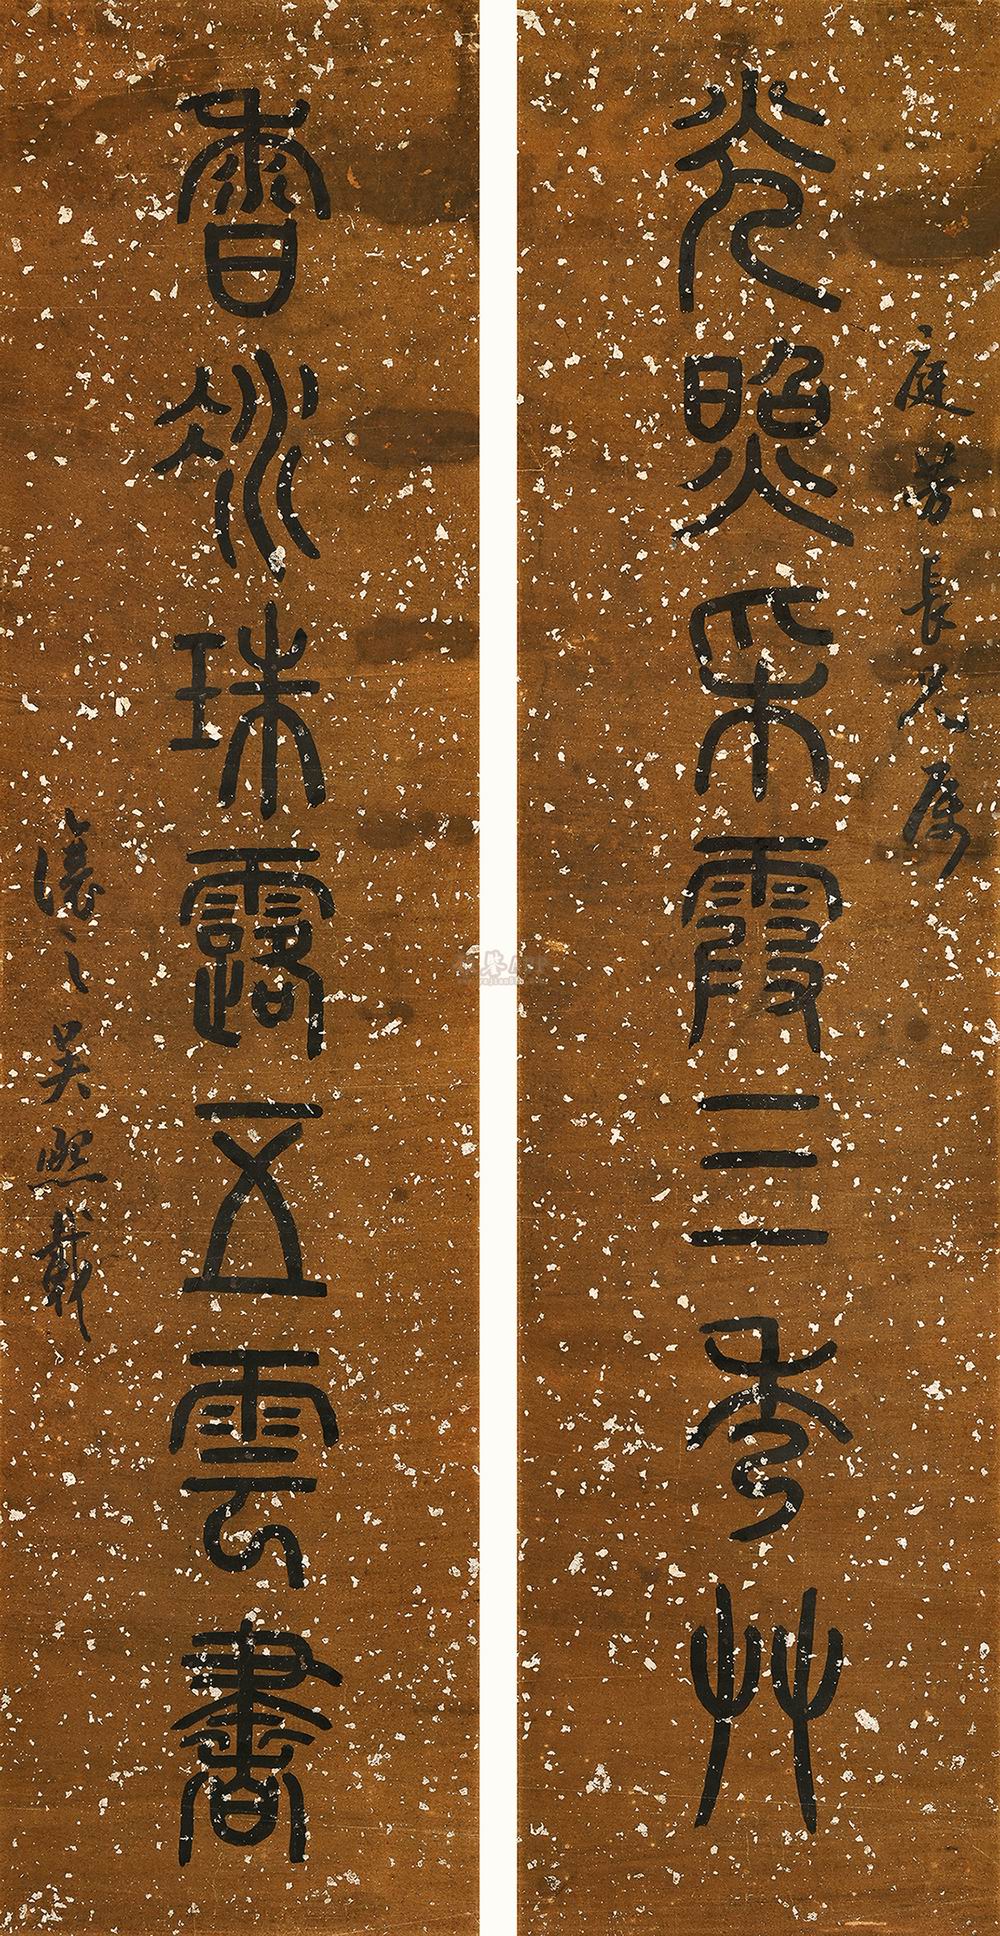 庭芳長兄属
光照采霞三秀艸
香冰珠露五雲書
讓之吳熙載